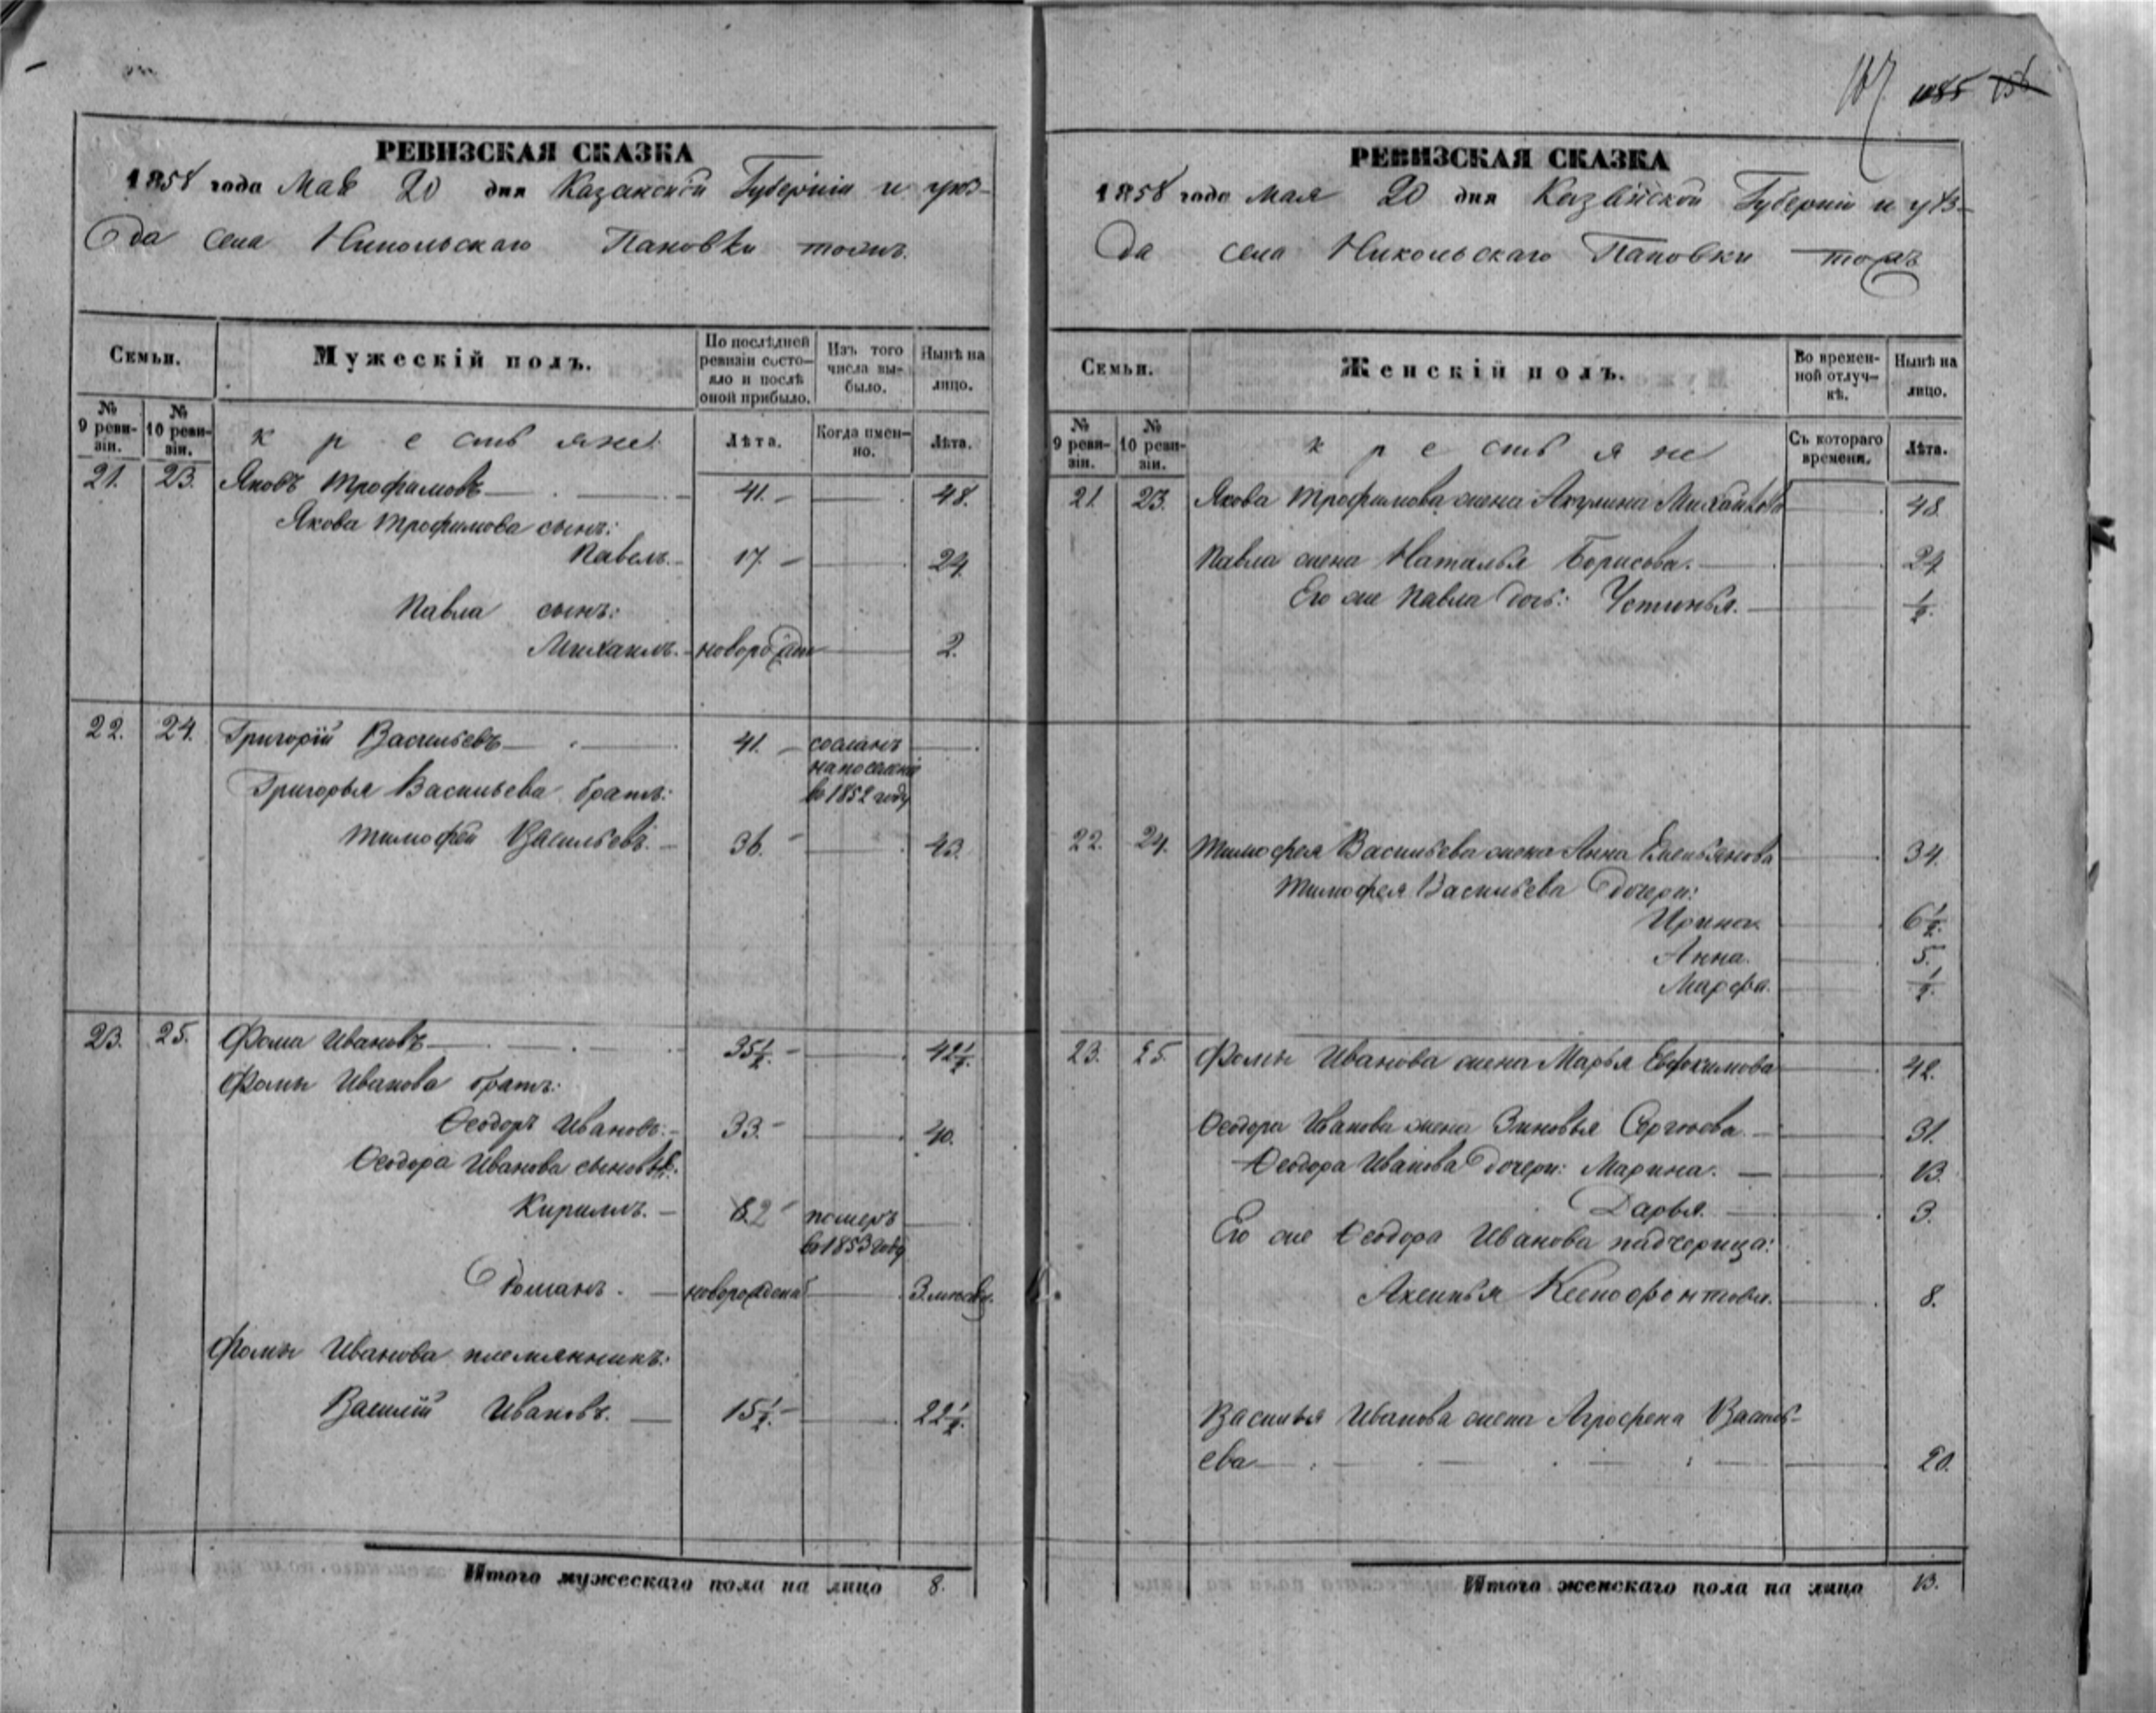 107 1085 156
РЕВИЗСКАЯ СКАЗКА
1858 года Мая 20 дня Казанской Губерніи и уѣз-
да села Никольскаго Пановки тожъ.
Семьи.
Мужескій полъ.
По послѣдней ревизіи состо-яло и послѣ оной прибыло.
Изъ того числа вы-было.
Нынѣ на лицо.
№ 9 реви-зіи.
№ 10 реви-зіи.
крестьяне:
Лѣта.
Когда имен-но.
Лѣта.
21. 23. Яковъ Трофимовъ 41. 48.
Якова Трофимова сынъ:
Павелъ. 17. 24.
Павла сынъ:
Михаилъ. новорожден 2.
22. 24. Григорій Васильевъ 41. сосланъ
на поселеніе
Григорья Васильева братъ: в 1852 году
Тимофей Васильевъ. 36. 43.
23. 25. Фома Ивановъ 35 1/2. 42 1/2.
Фомы Иванова братъ:
Ѳеодоръ Ивановъ. 33. 40.
Ѳеодора Иванова сыновья:
Кирилъ. 2 померъ
в 1853 году
Романъ. новорожденъ 3 мѣсяц.
Фомы Иванова племянникъ:
Василій Ивановъ. 15 1/2. 22 1/2.
Итого мужескаго пола на лицо 8.
РЕВИЗСКАЯ СКАЗКА
1858 года мая 20 дня Казанской Губерніи и уѣз-
да села Никольскаго Пановки тожъ
Семьи.
Женскій полъ.
Во времен-ной отлуч-кѣ.
Нынѣ на лицо.
№ 9 реви-зіи.
№ 10 реви-зіи.
крестьяне
Съ котораго времени.
Лѣта.
21. 23. Якова Трофимова жена Акулина Михайлова 48.
Павла жена Наталья Борисова. 24.
Его же Павла дочь: Устинья. 1/2.
22. 24. Тимофея Васильева жена Анна Емельянова 34.
Тимофея Васильева дочери:
Ирина. 6 1/2.
Анна. 5.
Марфа. 1/2.
23. 25. Фомы Иванова жена Марья Евдокимова 42.
Ѳеодора Иванова жена Зиновья Сергѣева. 31.
Ѳеодора Иванова дочери: Марина. 13.
Дарья. 3.
Его же Ѳеодора Иванова падчерица:
Аксинья Ксенофонтова. 8.
Василья Иванова жена Агрофена Василь-
ева 20.
Итого женскаго пола на лицо 13.